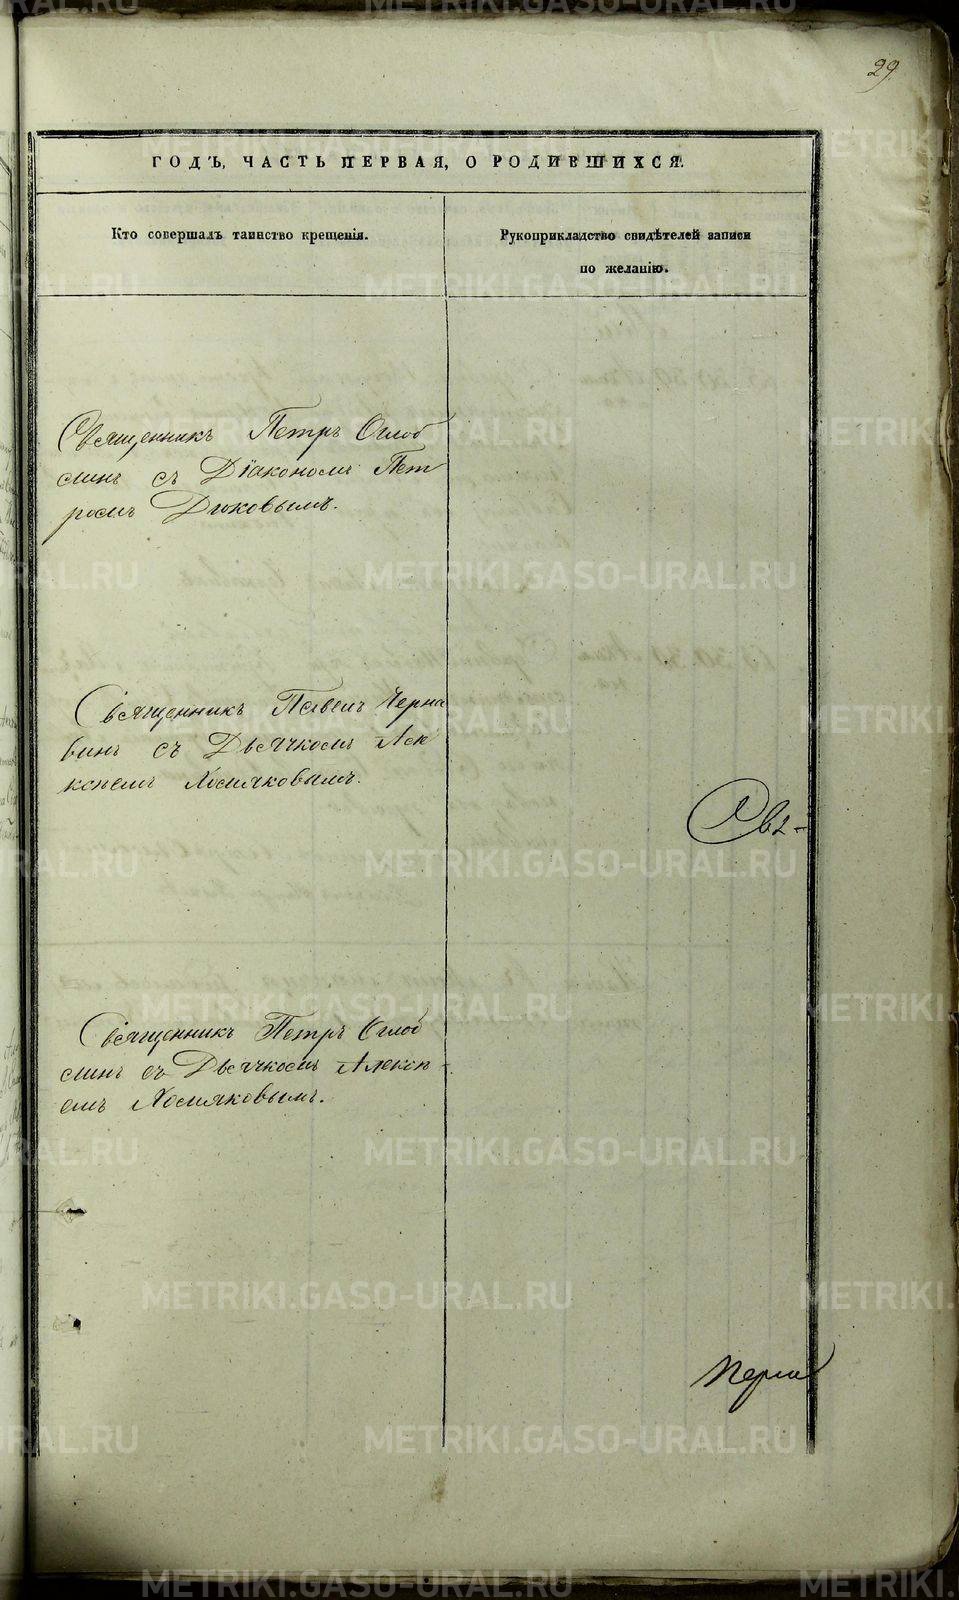 29.
ГОДЪ, ЧАСТЬ ПЕРВАЯ, О РОДИВШИХСЯ.
Кто совершалъ таинство крещенія.
Рукоприкладство свидѣтелей записи
по желанію.
Священникъ Петръ Оглоб
линъ съ Діакономъ Пет
ромъ Дюковымъ.
Священникъ Павелъ Черна
винъ съ Дьячкомъ Алек
сѣемъ Хомяковымъ.
Свя-
Священникъ Петръ Оглоб
линъ съ Дьячкомъ Алексѣ
емъ Хомяковымъ.
METRIKI.GASO-URAL.RU